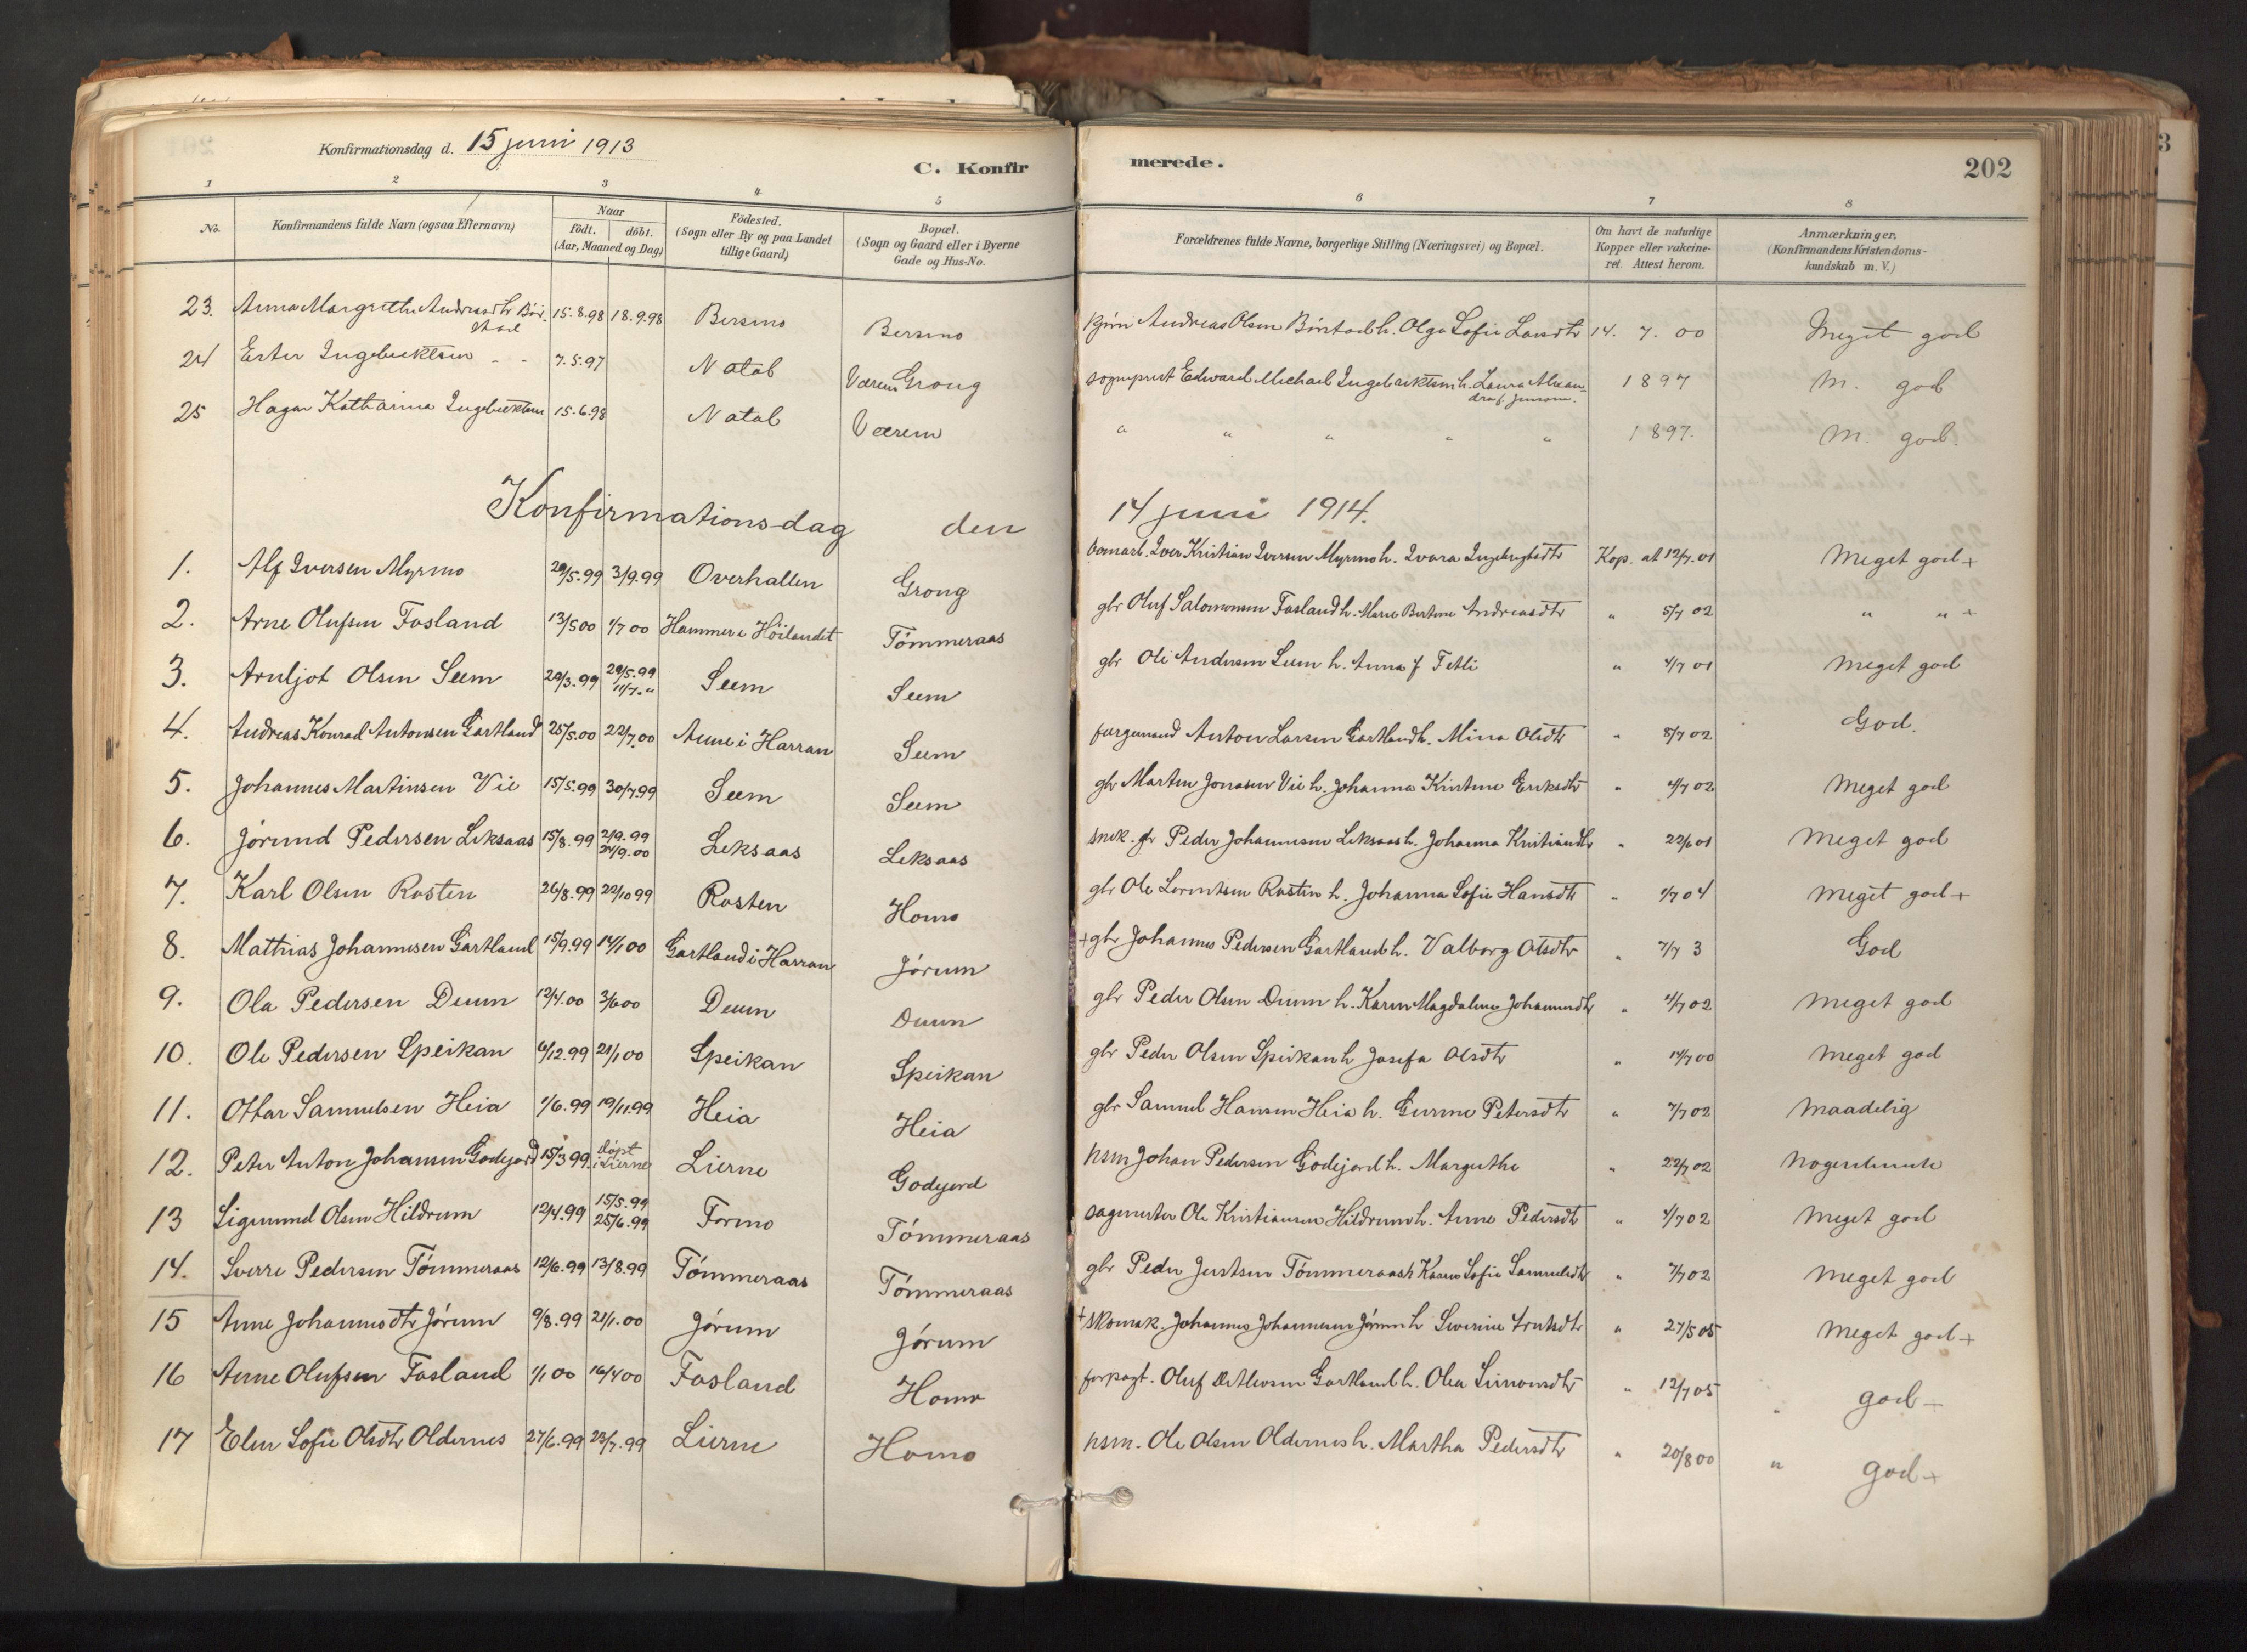 Konfirmationsdag d. 15 juni 1913
C. Konfirmerede. 202
1 2 3 4 5 6 7 8
No. Konfirmandens fulde Navn (ogsaa Efternavn) Naar födt. döbt. (Aar, Maaned og Dag) Födested. (Sogn eller By og paa Landet tillige Gaard) Bopæl. (Sogn og Gaard eller i Byerne Gade og Hus-No. Forældrenes fulde Navne, borgerlige Stilling (Næringsvei) og Bopæl. Om havt de naturlige Kopper eller vakcineret. Attest herom. Anmærkninger. (Konfirmandens Kristendomskundskab m. V.)
23. Anna Margrethe Andreasdtr Börstad 15.8.98 18.9.98 Bersmo Bersmo Andreas Olsen Börstad h. Olga Sofie 14. 7. 00 Meget god
24 Ester Ingebrektsen - - 7.5.97 Natal Værem Grong sogneprest Edward Michael Ingebrektsen h. Laura 1897 M. god
25 Hagar Katharina Ingebrektsen 15.6.98 Natal Værem " " " " " 1897. M. god.
Konfirmationsdag den 14 juni 1914.
1. Alf Iversen Myrmo 29/5.99 3/9.99 Overhallen Grong Iver Kristian Iversen Myrmo h. Ivara Ingebrigtsdtr Kop. at 12/7.01 Meget god +
2. Arne Olufsen Fosland 13/5 00 1/7 00 Hammer i Höilandet Tömmeraas gbr Oluf Salomonsen Fosland h. Marie Bertine Andreasdtr " 5/7 02 " " +
3. Arnljot Olsen Seem 29/3.99 29/5.99 11/7. " Seem Seem gbr Ole Andersen Seem h. Anna f Fetli " 4/7 01 Meget god
4. Andreas Konrad Antonsen Gartland 25/5.00 22/7.00 Aune i Harran Seem færgemand Anton Larsen Gartland h. Mina Olsdtr " 8/7 02 God.
5. Johannes Martinsen Vie 15/5.99 30/7.99 Seem Seem gbr Martin Jonasen Vie h. Johanna Kristine Eriksdtr " 4/7 02 Meget god
6. Jörund Pedersen Leksaas 15/8.99 2/9.99 24/9.00 Leksaas Leksaas snek. gbr Peder Johannesen Leksaas h. Johanna Kristiansdtr " 22/6 01 Meget god
7. Karl Olsen Rosten 26/8.99 22/10 99 Rosten Homo gbr Ole Lorentsen Rosten h. Johanna Sofie Hansdtr " 1/7 04 Meget god +
8. Mathias Johannesen Gartland 15/9.99 14/1 00 Gartland i Harran Jörum + gbr Johannes Pedersen Gartland h. Valborg Olsdtr " 7/7 3 God
9. Ola Pedersen Duun 12/4.00 3/6 00 Duun Duun gbr Peder Olsen Duun h. Karen Magdalene Johannesdtr " 4/7 02 Meget god
10. Ole Pedersen Speikan 6/12.99 21/1 00 Speikan Speikan gbr Peder Olsen Speikan h Josefa Olsdtr " 14/7 00 Meget god
11. Ottar Samuelsen Heia 1/6.99 19/11.99 Heia Heia gbr Samuel Hansen Heia h. Gurine Petersdtr " 7/7 02 Maadelig
12. Peter Anton Johansen Godejord 15/3 99. döpt i Lierne Lierne Godejord hsm Johan Pedersen Godejord h. Margrethe " 22/7 02 Nogenlunde
13 Sigmund Olsen Hildrum 12/4.99 15/5.99 25/6.99 Formo Tömmeraas sagmester Ole Kristiansen Hildrum h. Anne Pedersdtr " 4/7 02 Meget god
14. Sverre Pedersen Tömmeraas 12/6.99 13/8.99 Tömmeraas Tömmeraas gbr Peder Justsen Tömmeraas h Karen Sofie Samuelsdtr " 7/7 02 Meget god
15 Anne Johannesdtr Jörum 9/8.99 21/1.00 Jörum Jörum + Skomak. Johannes Johannesen Jörum h Severine " 27/5 05 Meget god +
16 Anne Olufsen Fosland 1/1 00 16/4 00 Fosland Homo forpagt. Oluf Gartland h. Olea Simonsdtr " 12/7 05 " god +
17 Elen Sofie Olsdtr Oldernes 27/6.99 23/7.99 Lierne Homo hsm. Ole Olsen Oldernes h. Martha Pedersdtr " 20/8 00 " god +